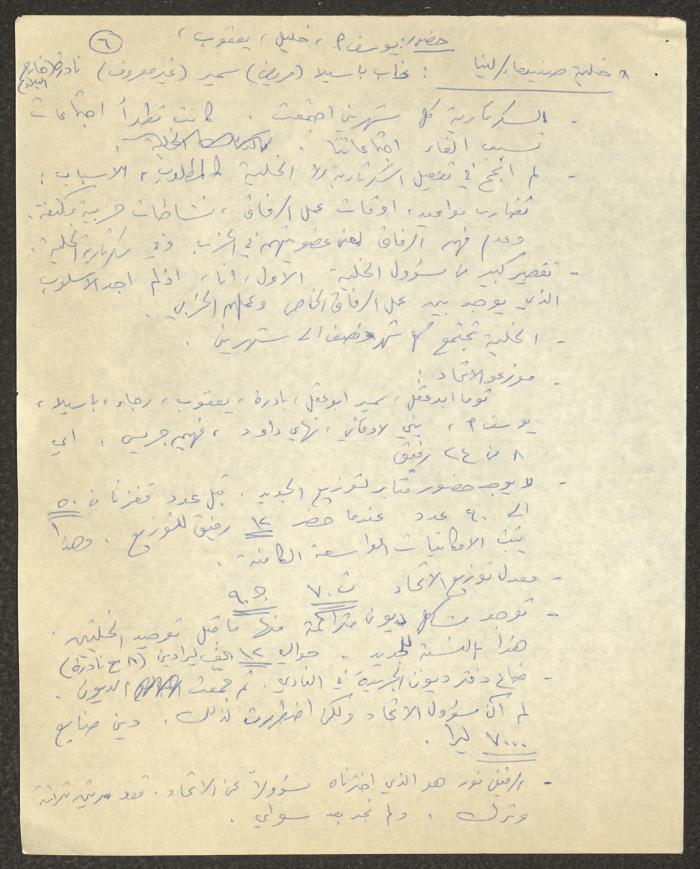 ٦
حضور: يوسف م، خليل، يعقوب،
خلية صنيعاء/لينا : غاب باسيلا (مريض) سمير (غير معروف) نادرة (خارج البلاد)
- السكرتارية كل شهرين اجتمعت. كانت تطرأ اجتماعات
تسبب الغاء اجتماعاتنا.
- لم انجح في تفعيل السكرتارية ولا الخلية المطلوب، الاسباب:
تضارب مواعيد، اوقات عمل الرفاق، نشاطات حزبية مكثفة.
وعدم فهم الرفاق لمعنى عضويتهم في الحزب وفي سكرتارية الخلية.
- تقصير كبير من مسؤول الخلية الاول، انا، اذ لم اجد الاسلوب
الذي يوجد بين عمل الرفاق الخاص وعملهم الحزبي.
- الخلية تجتمع كل شهر ونصف الى شهرين.
- موزعو الاتحاد:
توما ابو عقل، سمير ابو عقل، نادرة، يعقوب، رجاء، باسيلا،
يوسف م، بني، نهاي داود، فهيم جريس. اي
٨ من ٢٤ رفيق
- لا يوجد حضور مثابر لتوزيع الجديد. قبل عدد قفزنا من ٥٠
الى ٩٠ عدد عندما حضر ١٢ رفيق للتوزيع. وهذا
يثبت الامكانيات الواسعة الكامنة.
- معدل توزيع الاتحاد ث. ٧٠ ج. ٩٠
- توجد مشاكل ديون متراكمة منها ما قبل توحيد الخليتين.
هذا بالنسبة للجديد. حوالي ١٢ الف ليرا دين (٨ ح نادرة)
- ضاع دفتر ديون الجريدة في النادي. ثم جمعت الديون.
لم اكن مسؤول الاتحاد ولكن اضطررت لذلك. دين ضايع
٧٠٠٠ ليرا.
- الرفيق نور هو الذي اخترناه مسؤولاً عن الاتحاد. قعد مرتين ثلاثة
وترك. ولم نجد بعد سواي.